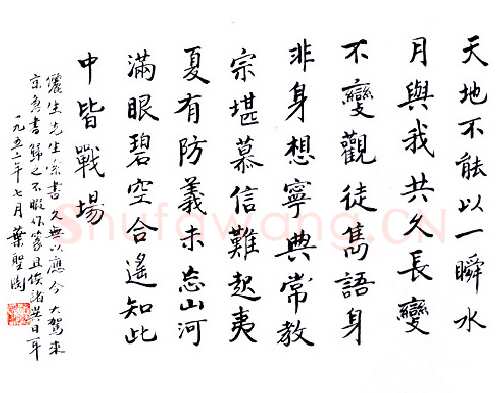 天地不能以一瞬水
月與我共久長變
不變觀徒雋語身
非身想寧典常教
宗堪慕信難起夷
夏有防義未忘山河
滿眼碧空合遙知此
中皆戰場
生先生索書久無以應今大駕來
京急書歸之不暇作篆且俟諸異日耳
一九五二年七月 葉聖陶
Shufawang.CN